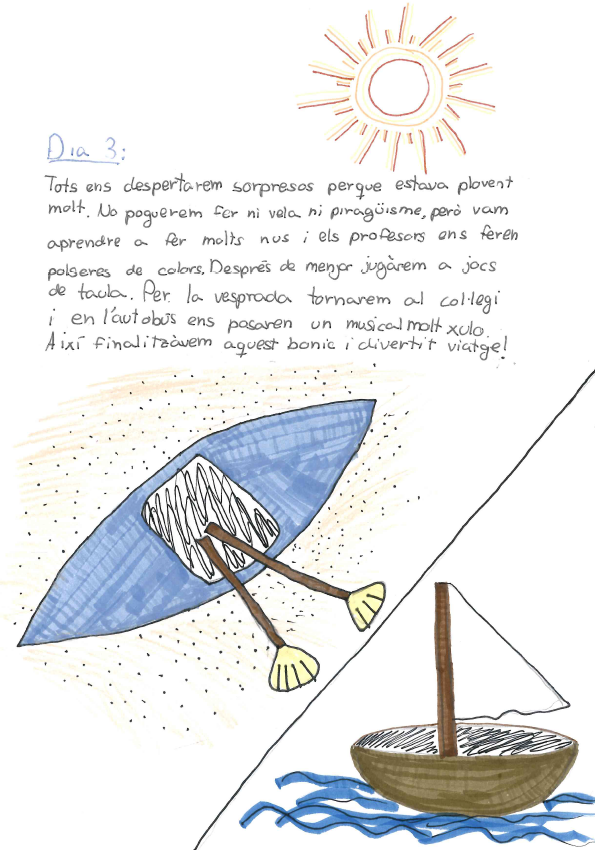 Dia 3:
Tots ens despertarem sorpresos perque estava plovent
molt. No poguerem fer ni vela ni piragüisme, però vam
aprendre a fer molts nus i els profesors ens feren
polseres de colors. Després de menjar jugàrem a jocs
de taula. Per la vesprada tornarem al col·legi
i en l'autobús ens posaren un musical molt xulo.
Així finalitzàvem aquest bonic i divertit viatge!